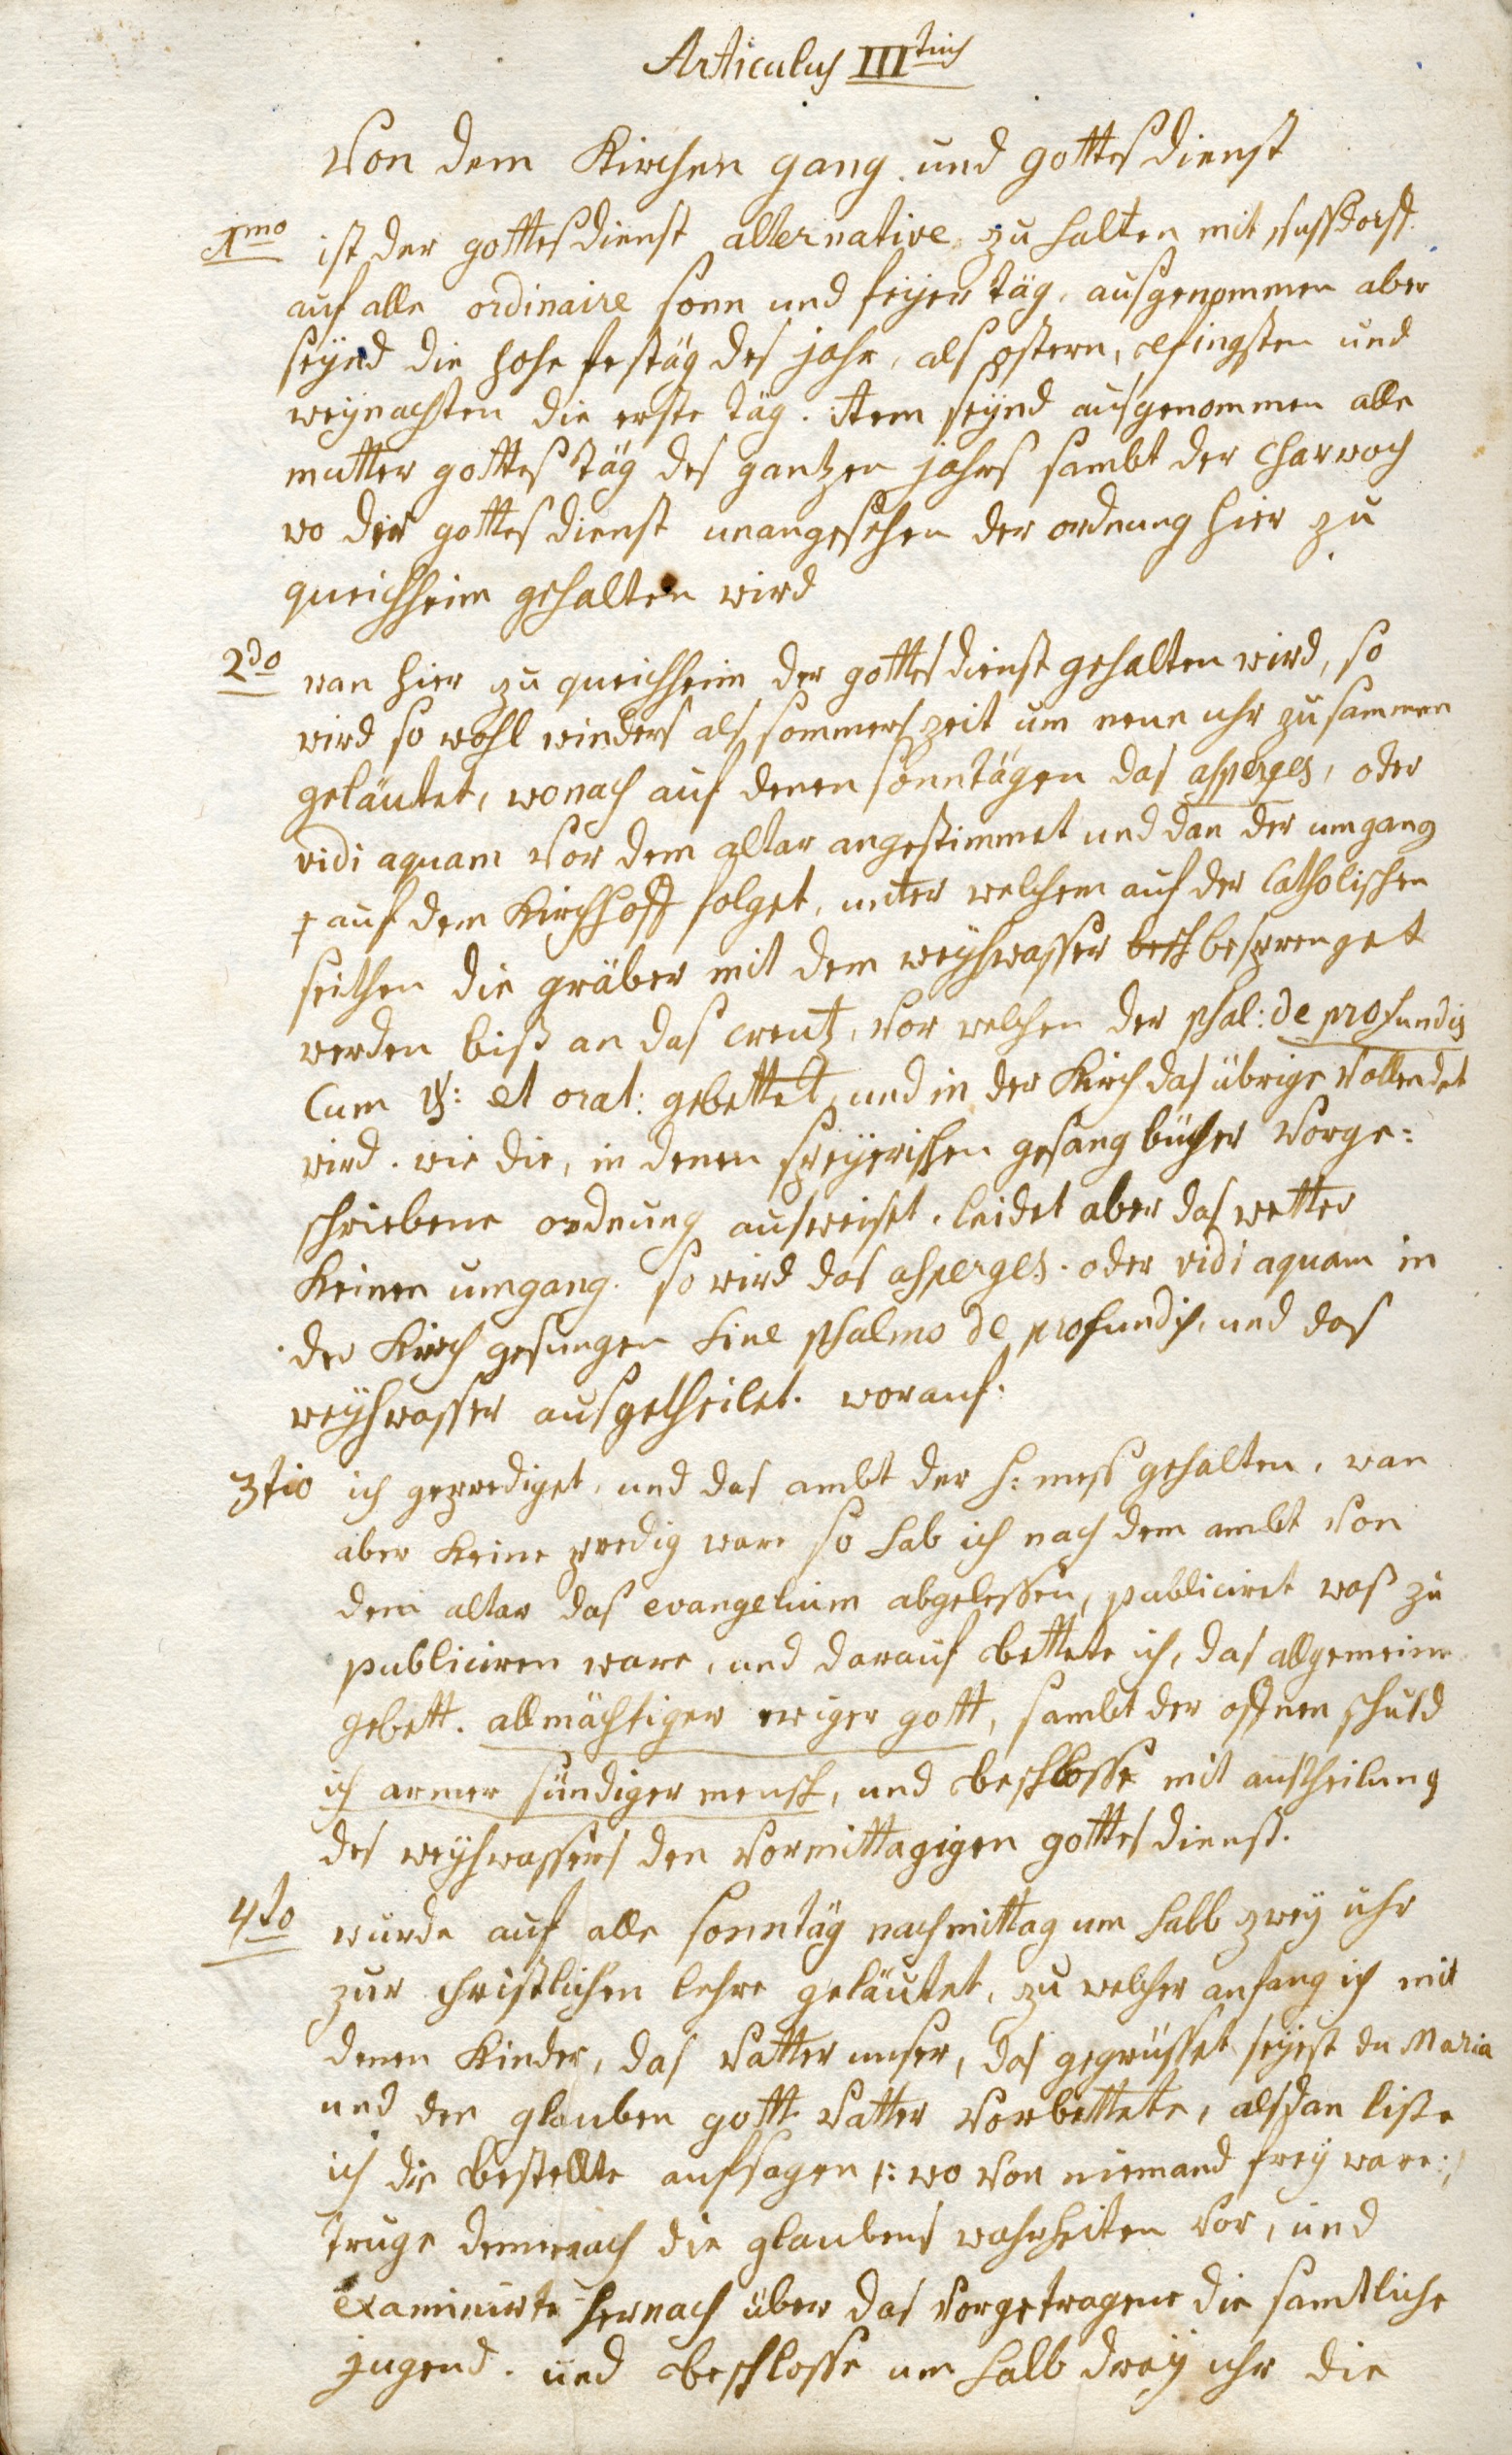 Articulus III tius
Von dem Kirchen gang und gottesdienst
1mo ist der gottesdienst alternative zu halten mit nussdorff
auf alle ordinaire sonn und feyer täg, ausgenommen aber
seynd die hohe festäg des jahr, als ostern, pfingsten und
weynachten die erste täg. Item seynd ausgenommen alle
mutter gottes täg des gantzen jahrs sambt der Charwoch
wo der gottesdienst unangesehen der ordnung hier zu
queichheim gehalten wird
2do wan hier zu queichheim der gottesdienst gehalten wird, so
wird so wohl winders als sommers zeit um neun uhr zusammen
geläutet, wonach auf denen sonntägen das asperges, oder
vidi aquam vor dem altar angestimmet und dan der umgang
+ auf dem Kirchhoff folget, unter welchem auf der Catholischen
seithen die gräber mit dem weyhwasser besprenget
werden biß an das creutz, vor welchen der psal: de profundis
Cum ℣: et orat: gebettet, und in der Kirch das übrige vollendet
wird. wie die, in denen speyerischen gesangbücher vorge=
schriebene ordnung ausweiset. leidet aber das wetter
keinen umgang. so wird das asperges. oder vidi aquam in
der Kirch gesungen sine psalmo de profundis, und das
weyhwasser ausgetheilet. worauf:
3tio ich geprediget, und das ambt der h: mess gehalten, wan
aber keine predig ware so hab ich nach dem ambt von
dem altar das evangelium abgelessen, publiciret waß zu
publiciren ware, und darauf bettete ich, das allgemeine
gebett. allmächtiger ewiger gott, sambt der offnen schuld
ich armer sündiger mensch, und beschlosse mit austheilung
des weyhwassers den vormittagigen gottesdienst.
4to wurde auf alle sonntäg nachmittag um halb zwey uhr
zur christlichen lehre geläutet, zu welcher anfang ich mit
denen Kinder, das vatter unser, das gegrüsset seyest du Maria
und den glauben gott vatter vorbettete, alsdan liese
ich die bestellte aufsagen /: wo von niemand frey ware :/
truge demnach die glaubens wahrheiten vor, und
examinirte hernach über das vorgetragene die samtliche
jugend. und beschlosse um halb drey uhr die